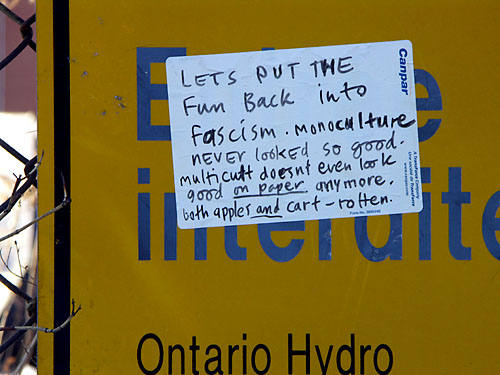 LETS PUT THE
Fun Back into
fascism. MONOCULTURE
NEVER looked so good.
multicult doesnt even look
good on paper anymore.
both apples and cart-rotten.
Canpar
www.canpar.com
interdite
Ontario Hydro